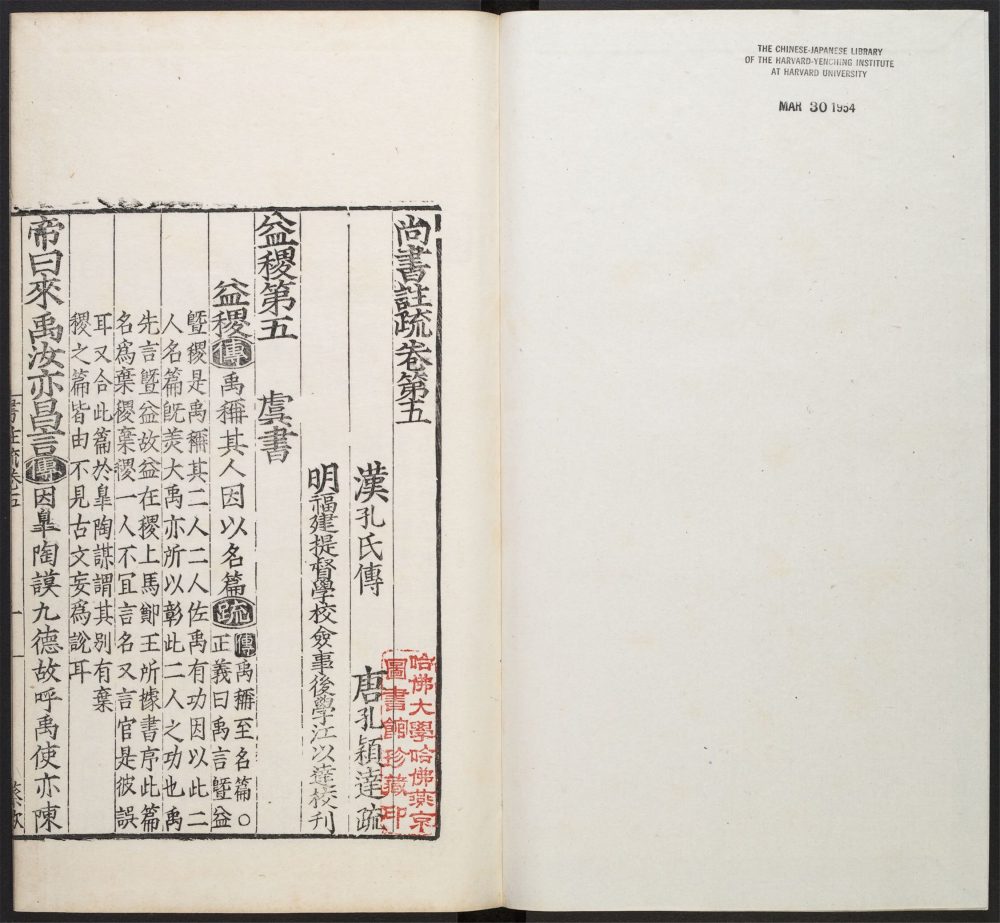 THE CHINESE-JAPANESE LIBRARY
OF THE HARVARD-YENCHING INSTITUTE
AT HARVARD UNIVERSITY
MAR 30 1954
尚書註疏卷第五
漢孔氏傳 唐孔穎達疏
明福建提督學校僉事後學江以達校刊
益稷第五 虞書
益稷傳禹稱其人因以名篇疏傳禹稱至名篇○
正義曰禹言曁益
曁稷是禹稱其二人二人佐禹有功因以此二
人名篇旣美大禹亦所以彰此二人之功也禹
先言曁益故益在稷上馬鄭王所據書序此篇
名爲棄稷棄稷一人不宜言名又言官是彼誤
耳又合此篇於皐陶謀謂其別有棄
稷之篇皆由不見古文妄爲說耳
帝曰來禹汝亦昌言傳因皐陶謨九德故呼禹使亦陳
哈佛大學哈佛燕京
圖書館珍藏印